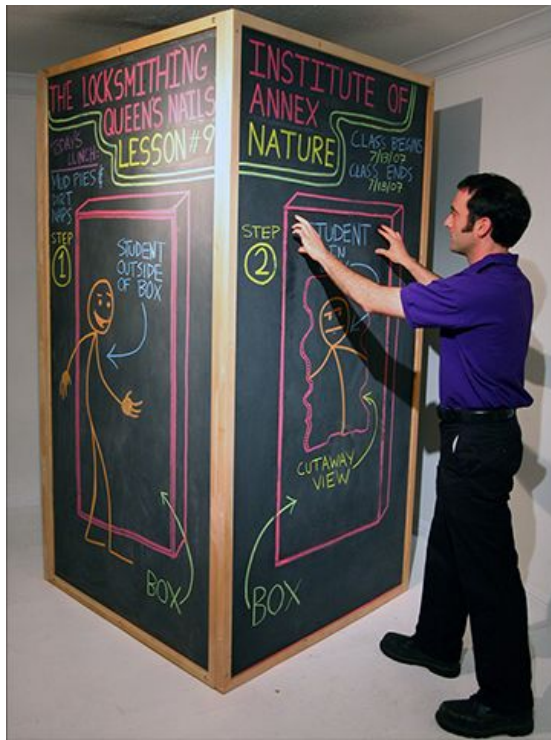 THE LOCKSMITHING
QUEEN'S NAILS
LESSON #9
TODAY'S
LUNCH:
MUD PIES &
DIRT
NAPS
STEP
1
STUDENT
OUTSIDE
OF BOX
BOX
INSTITUTE OF
ANNEX
NATURE
CLASS BEGINS
7/13/07
CLASS ENDS
STEP
2
TUDENT
IN
CUTAWAY
VIEW
BOX